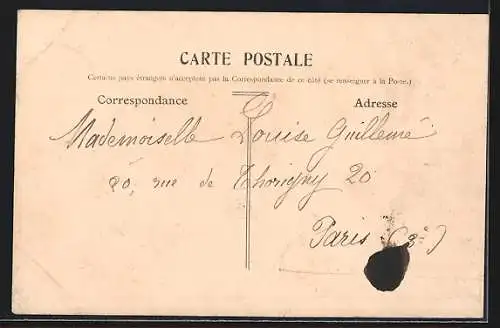 CARTE POSTALE
Certains pays étrangers n'acceptent pas la Correspondance de ce côté (se renseigner à la Poste.)
Correspondance Adresse
Mademoiselle Louise Guillemé
20, rue de Thorigny 20
Paris (3e)